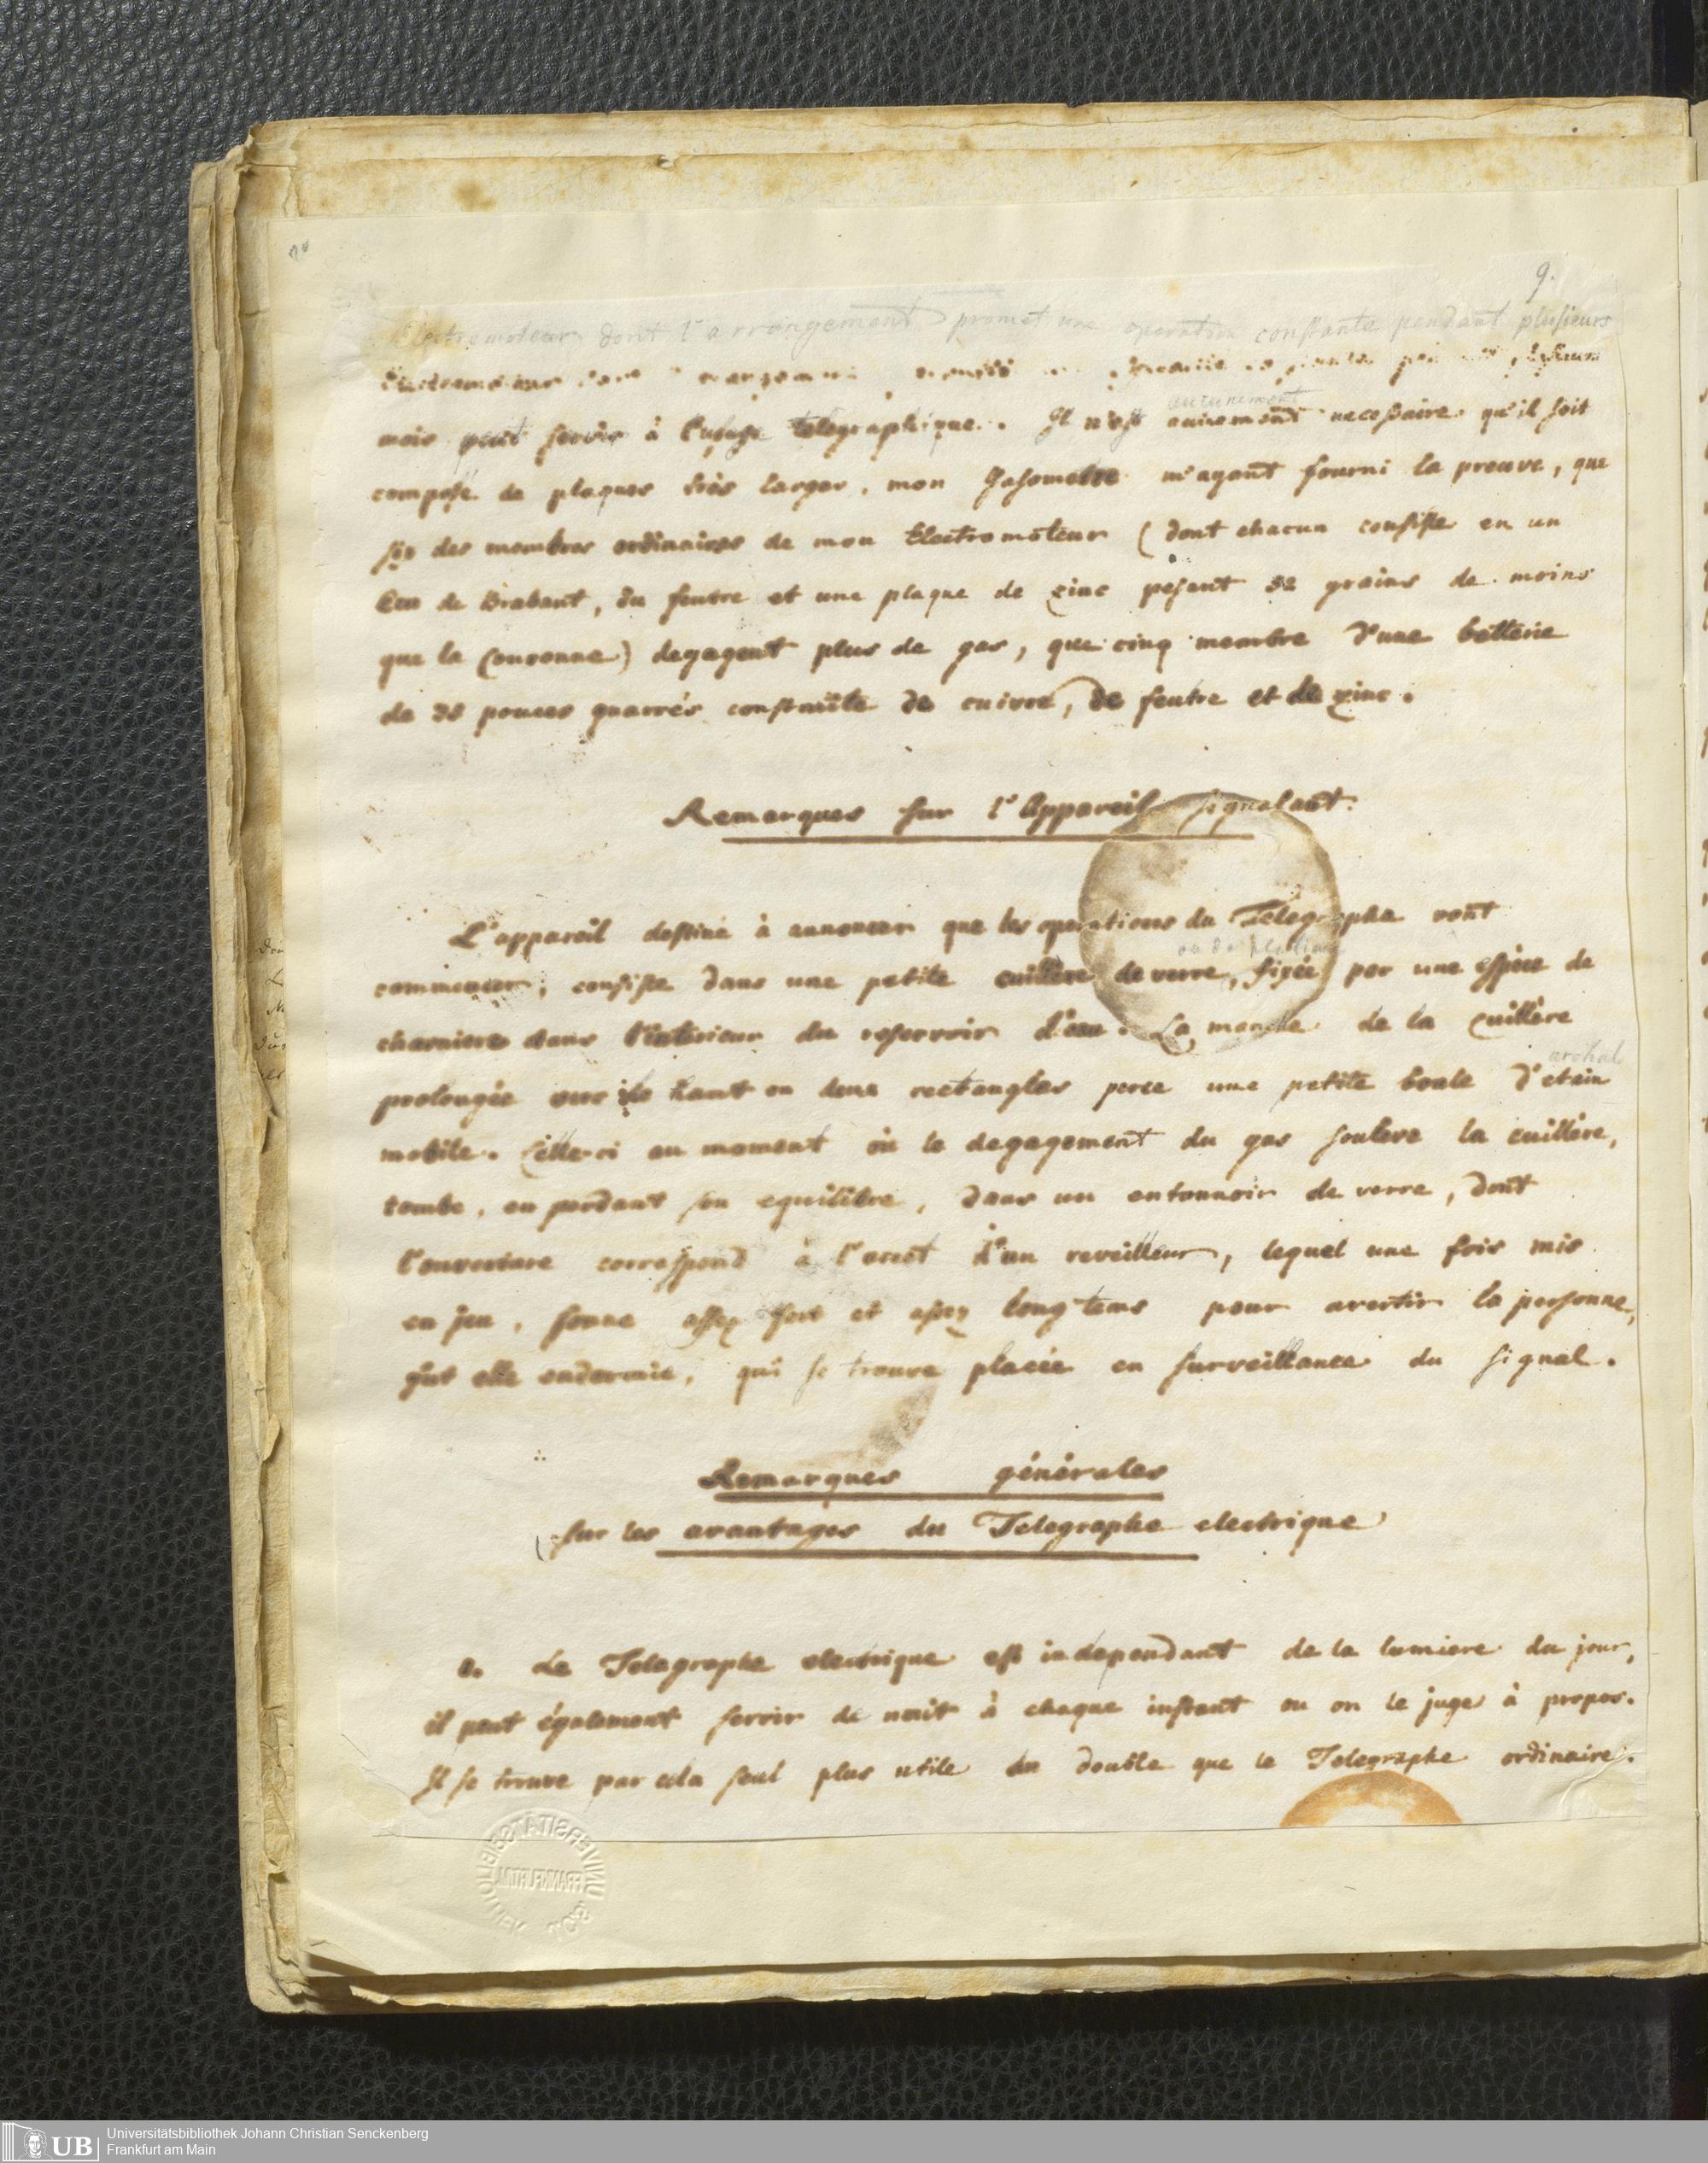 9.
Electromoteur dont l'arrangement promet une operation constante pendant plusieurs
mois peut servir à l'usage telegraphique. Il n'est aucunement necessaire qu'il soit
aucunement
composé de plaques très larges, mon Gasometre m'ayant fourni la preuve, que
six des membres ordinaires de mon Electromoteur (dont chacun consiste en un
Ecu de Brabant, du feutre et une plaque de zinc pesant 52 grains de moins
que la Couronne) degagent plus de gas, que cinq membre d'une batterie
de 38 pouces quarrés construite de cuivre, de feutre et de zinc.
Remarques sur l'Appareil signalant.
L'appareil destiné à annoncer que les operations du Telegraphe vont
ou de platine
commencer, consiste dans une petite cuillère de verre, fixée par une espèce de
charniere dans l'intérieur du reservoir d'eau. La manche de la cuillère
archal
prolongée vers le haut en deux rectangles perce une petite boule d'etain
mobile. Celle-ci au moment où le degagement du gas souleve la cuillère,
tombe, en perdant son equilibre, dans un entonnoir de verre, dont
l'ouverture correspond à l'arrêt d'un reveilleur, lequel une fois mis
en jeu, sonne assez fort et assez long tems pour avertir la personne,
fut elle endormie, qui se trouve placée en surveillance du signal.
Remarques générales
sur les avantages du Telegraphe electrique
Le Telegraphe electrique est independant de la lumiere du jour,
il peut également servir de nuit à chaque instant ou on le juge à propos.
Il se trouve par cela seul plus utile du double que le Telegraphe ordinaire.
UNIVERSITÄTSBIBLIOTHEK
FRANKFURT/M.
UB
Universitätsbibliothek Johann Christian Senckenberg
Frankfurt am Main